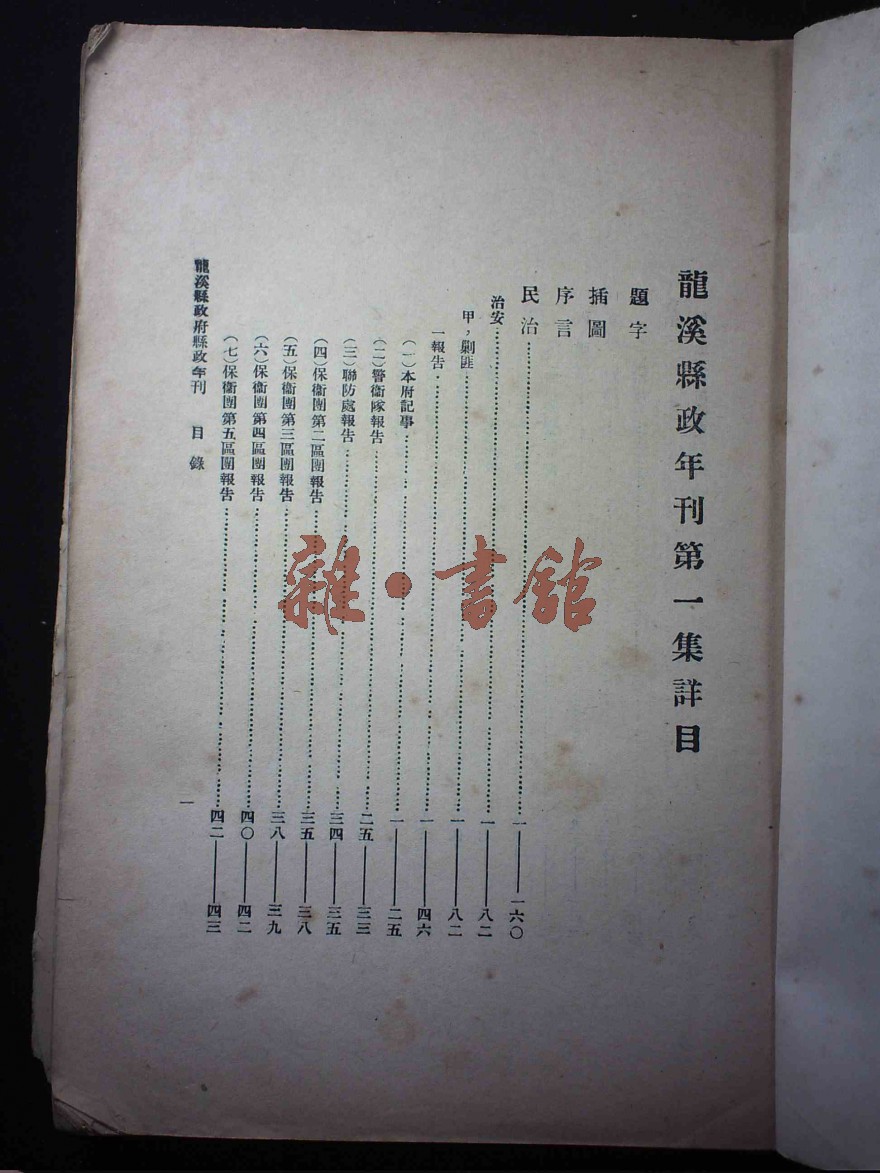 龍溪縣政年刊第一集詳目
題字
插圖
序言
民治……一——一六〇
治安……一——八二
甲，剿匪……一——八二
一報告……一——四六
（一）本府記事……一——二五
（二）警衞隊報告……二五——三三
（三）聯防處報告……三四——三五
（四）保衞團第二區團報告……三五——三八
（五）保衞團第三區團報告……三八——三九
（六）保衞團第四區團報告……四〇——四二
（七）保衞團第五區團報告……四二——四三
龍溪縣政府縣政年刊 目錄
一
雜·書舘